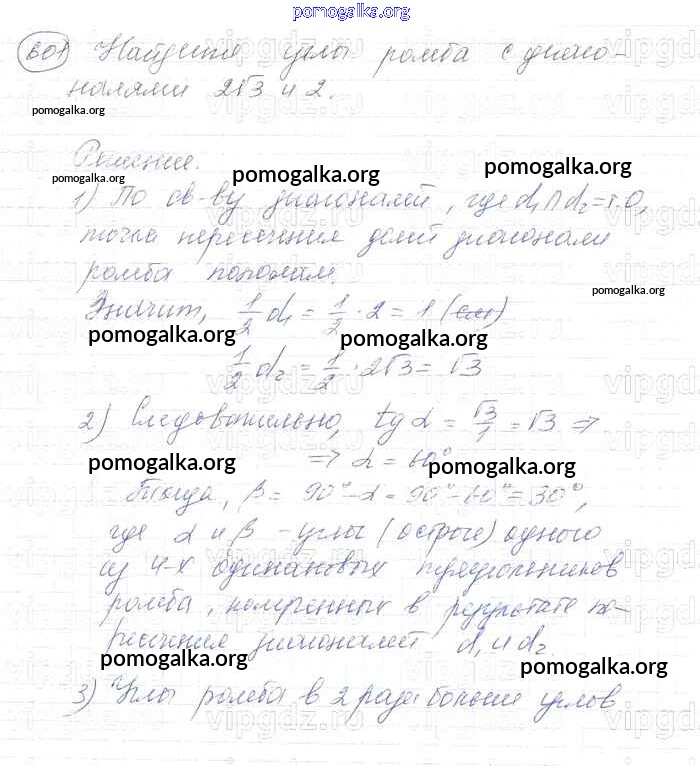 pomogalka.org
601 Найдите углы ромба с диаго-
налями 2√3 и 2.
pomogalka.org
Решение.
pomogalka.org pomogalka.org pomogalka.org
1) По св-ву диагоналей, где d₁∩d₂=т.О,
точка пересечения делит диагонали
ромба пополам.
pomogalka.org
Значит, 1/2 d₁ = 1/2 · 2 = 1 (см)
pomogalka.org pomogalka.org
1/2 d₂ = 1/2 · 2√3 = √3
2) Следовательно, tg α = √3/1 = √3 ⇒
⇒ α = 60°
pomogalka.org pomogalka.org
Тогда, β = 90° - α = 90° - 60° = 30°,
где α и β - углы (острые) одного
из 4-х одинаковых треугольников
ромба, полученных в результате пе-
ресечения диагоналей d₁ и d₂.
pomogalka.org pomogalka.org
3) Углы ромба в 2 раза больше углов